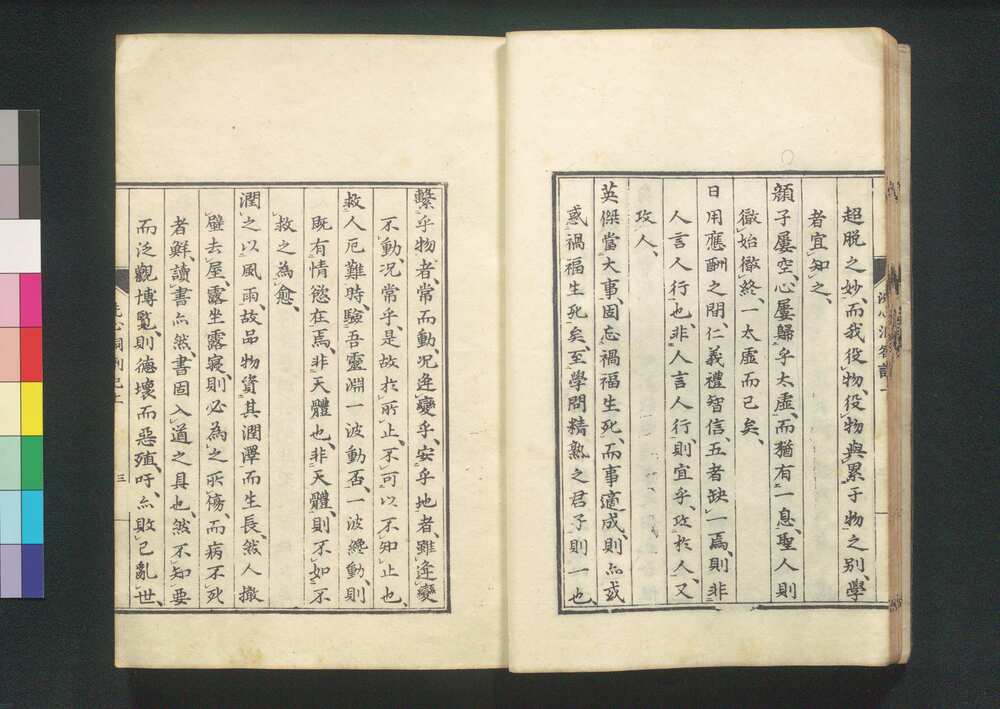 超脫之妙而我役物、役物與累于物之別、學
者宜知之、
顏子屢空、心屢歸乎太虛、而猶有一息、聖人則
徹始徹終、一太虛而已矣、
日用應酬之間、仁義禮智信、五者缺一焉、則非
人言人行也、非人言人行、則宜乎、攻於人、又
攻人、
英傑當大事、固忘禍福生死、而事適成、則亦或
惑禍福生死矣、至學問精熟之君子則一也、
繫乎物者、常而動、况逢變乎、安乎地者、雖逢變
不動、况常乎、是故於所止、不可以不知止也、
救人厄難時、驗吾靈淵一波動否、一波纔動、則
既有情慾在焉、非天體也、非天體、則不如不
救之為愈、
潤之以風雨、故品物資其潤澤而生長、然人撤
壁去屋、露坐露寢、則必為之所傷、而病不死
者鮮、讀書亦然、書固入道之具也、然不知要
而泛觀博覧、則德壞而惡殖、吁、亦敗已亂世、
三